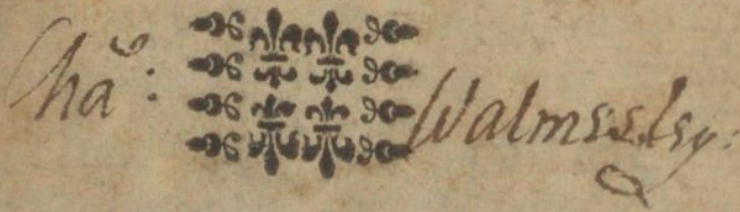 Cha^s: Walmesley: